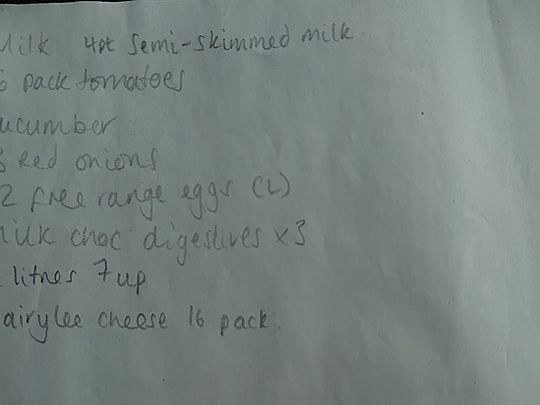 Milk 4pt Semi-skimmed milk
6 pack tomatoes
ucumber
3 Red onions
2 free range eggs (L)
milk choc digestives x3
litres 7up
airylee cheese 16 pack.